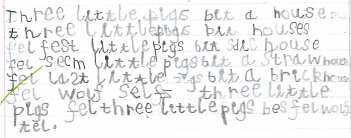 Three little pigs bit a house
three littlepigs bit houses
fel fest little pigs bit house
fel seem little pigs bit a strawhouse
fel last little pigs bit a brickhouse
fel wolf self three little
pigs fel three little pigs bes fel wolf
tel.